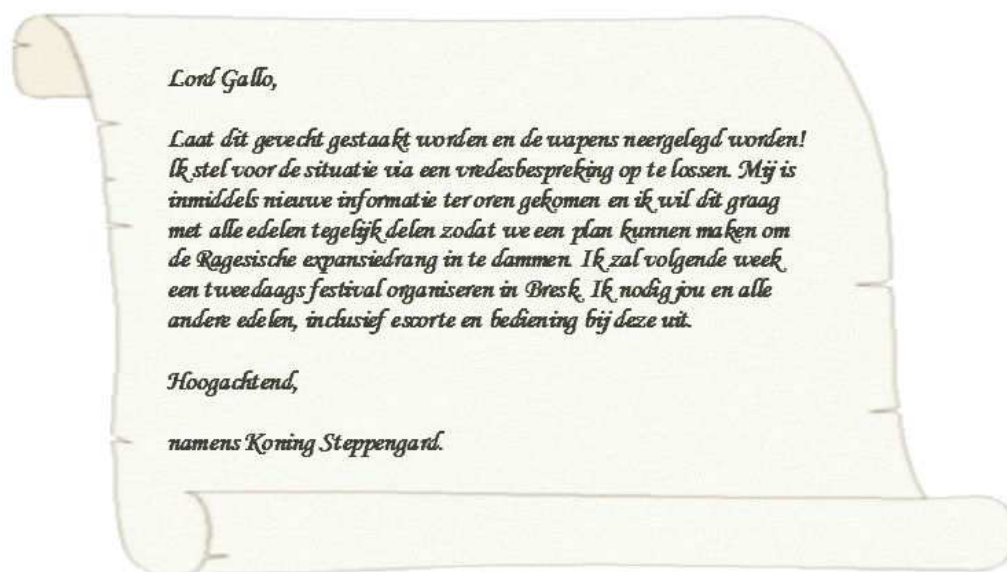 Lord Gallo,
Laat dit gevecht gestaakt worden en de wapens neergelegd worden!
Ik stel voor de situatie via een vredesbespreking op te lossen. Mij is
inmiddels nieuwe informatie ter oren gekomen en ik wil dit graag
met alle edelen tegelijk delen zodat we een plan kunnen maken om
de Ragesische expansiedrang in te dammen. Ik zal volgende week
een tweedaags festival organiseren in Bresk. Ik nodig jou en alle
andere edelen, inclusief escorte en bediening bij deze uit.
Hoogachtend,
namens Koning Steppengard.